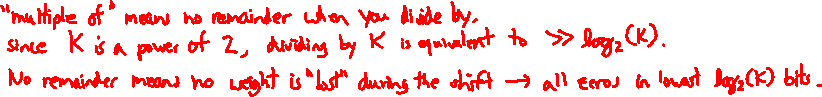 "multiple of" means no remainder when you divide by.
since K is a power of 2, dividing by K is equivalent to >> log₂(K).
No remainder means no weight is "lost" during the shift → all zeros in lowest log₂(K) bits.